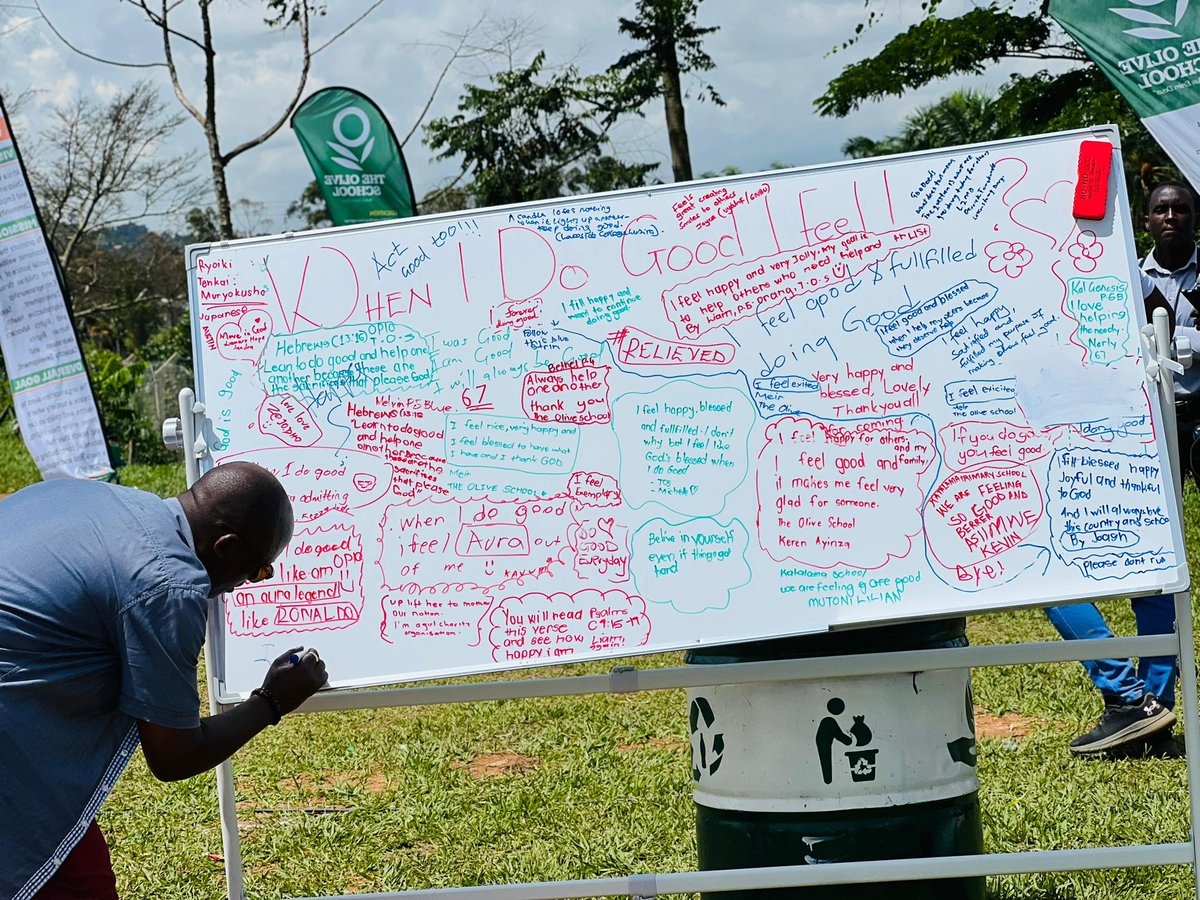 THE OLIVE
SCHOOL
THE OLIVE
SCHOOL
MISSION
OVERALL GOAL
WHEN I Do Good I feel!!
Act
Good too!!!
A candle loses nothing
when it lights up another
keep doing good.
Feels
great creating
smiles to others
Ryoiki
Tenkai:
Muryokusho
Japanese
God is good
Hebrews (13:16)
OPIO
T.O.S
Lean to do good and help one
another because these are
the sacrifices that please God!
I was Good
I am Good
I will always
forever
doing good
I fill happy and
want to continue
doing good
Follow
this blue
#RELIEVED
I feel happy and very Jolly. My goal is
to help others who need help and
By Liam, P.5 orang, T.O.S
feel good & fullfilled
doing Good!
I feel good and blessed
when I help my
I feel happy,
satisfied and
fulfilled
Kal Genesis
P.6B
I love
helping
the needy,
Nerly
67
Melvin P.5 Blue
Hebrews (13:16
"Learn to do good
and help one
another because
these are the
sacrifices
that please
God"
67
Bethel P4
Always help
one another
thank you
The Olive school
I feel nice, very happy and
I feel blessed to have what
I have and I thank GOD
Mein
THE OLIVE SCHOOL
I feel
Exemplary
I feel happy, blessed
and fulfilled. I don't
why but I feel like
God's blessed when
I do Good
Michelle
I feel exited
Meir
The Olive
very happy and
blessed, Lovely
Thankyou all
for coming
I feel exicited
The olive school
I feel happy for others,
and my
family,
I feel good and
it makes me feel very
glad for someone.
The Olive School
Keren Ayinza
If you do good
you feel good
doing good
KATALAMA PRIMARY SCHOOL
WE ARE FEELING
SO GOOD AND
BERRER
ASIIMWE
KEVIN
Bye!
I fill blessed happy
Joyful and thankful
to God
And I will always love
this country and school
By Joash
please dont rub
I do good
admitting
do good
OPIO
like am
an aura legend
like RONALDO
When I do good
i feel Aura out
of me
DO
GOOD
Everyday
Belive in yourself
even if things got
hard
up lift her to
our nation.
I'm a girl charity
organisation.
You will read Psalms
this verse
and see how
happy i am
Liam,
again.
Katalama School
we are feeling good
MUTONI LILIAN